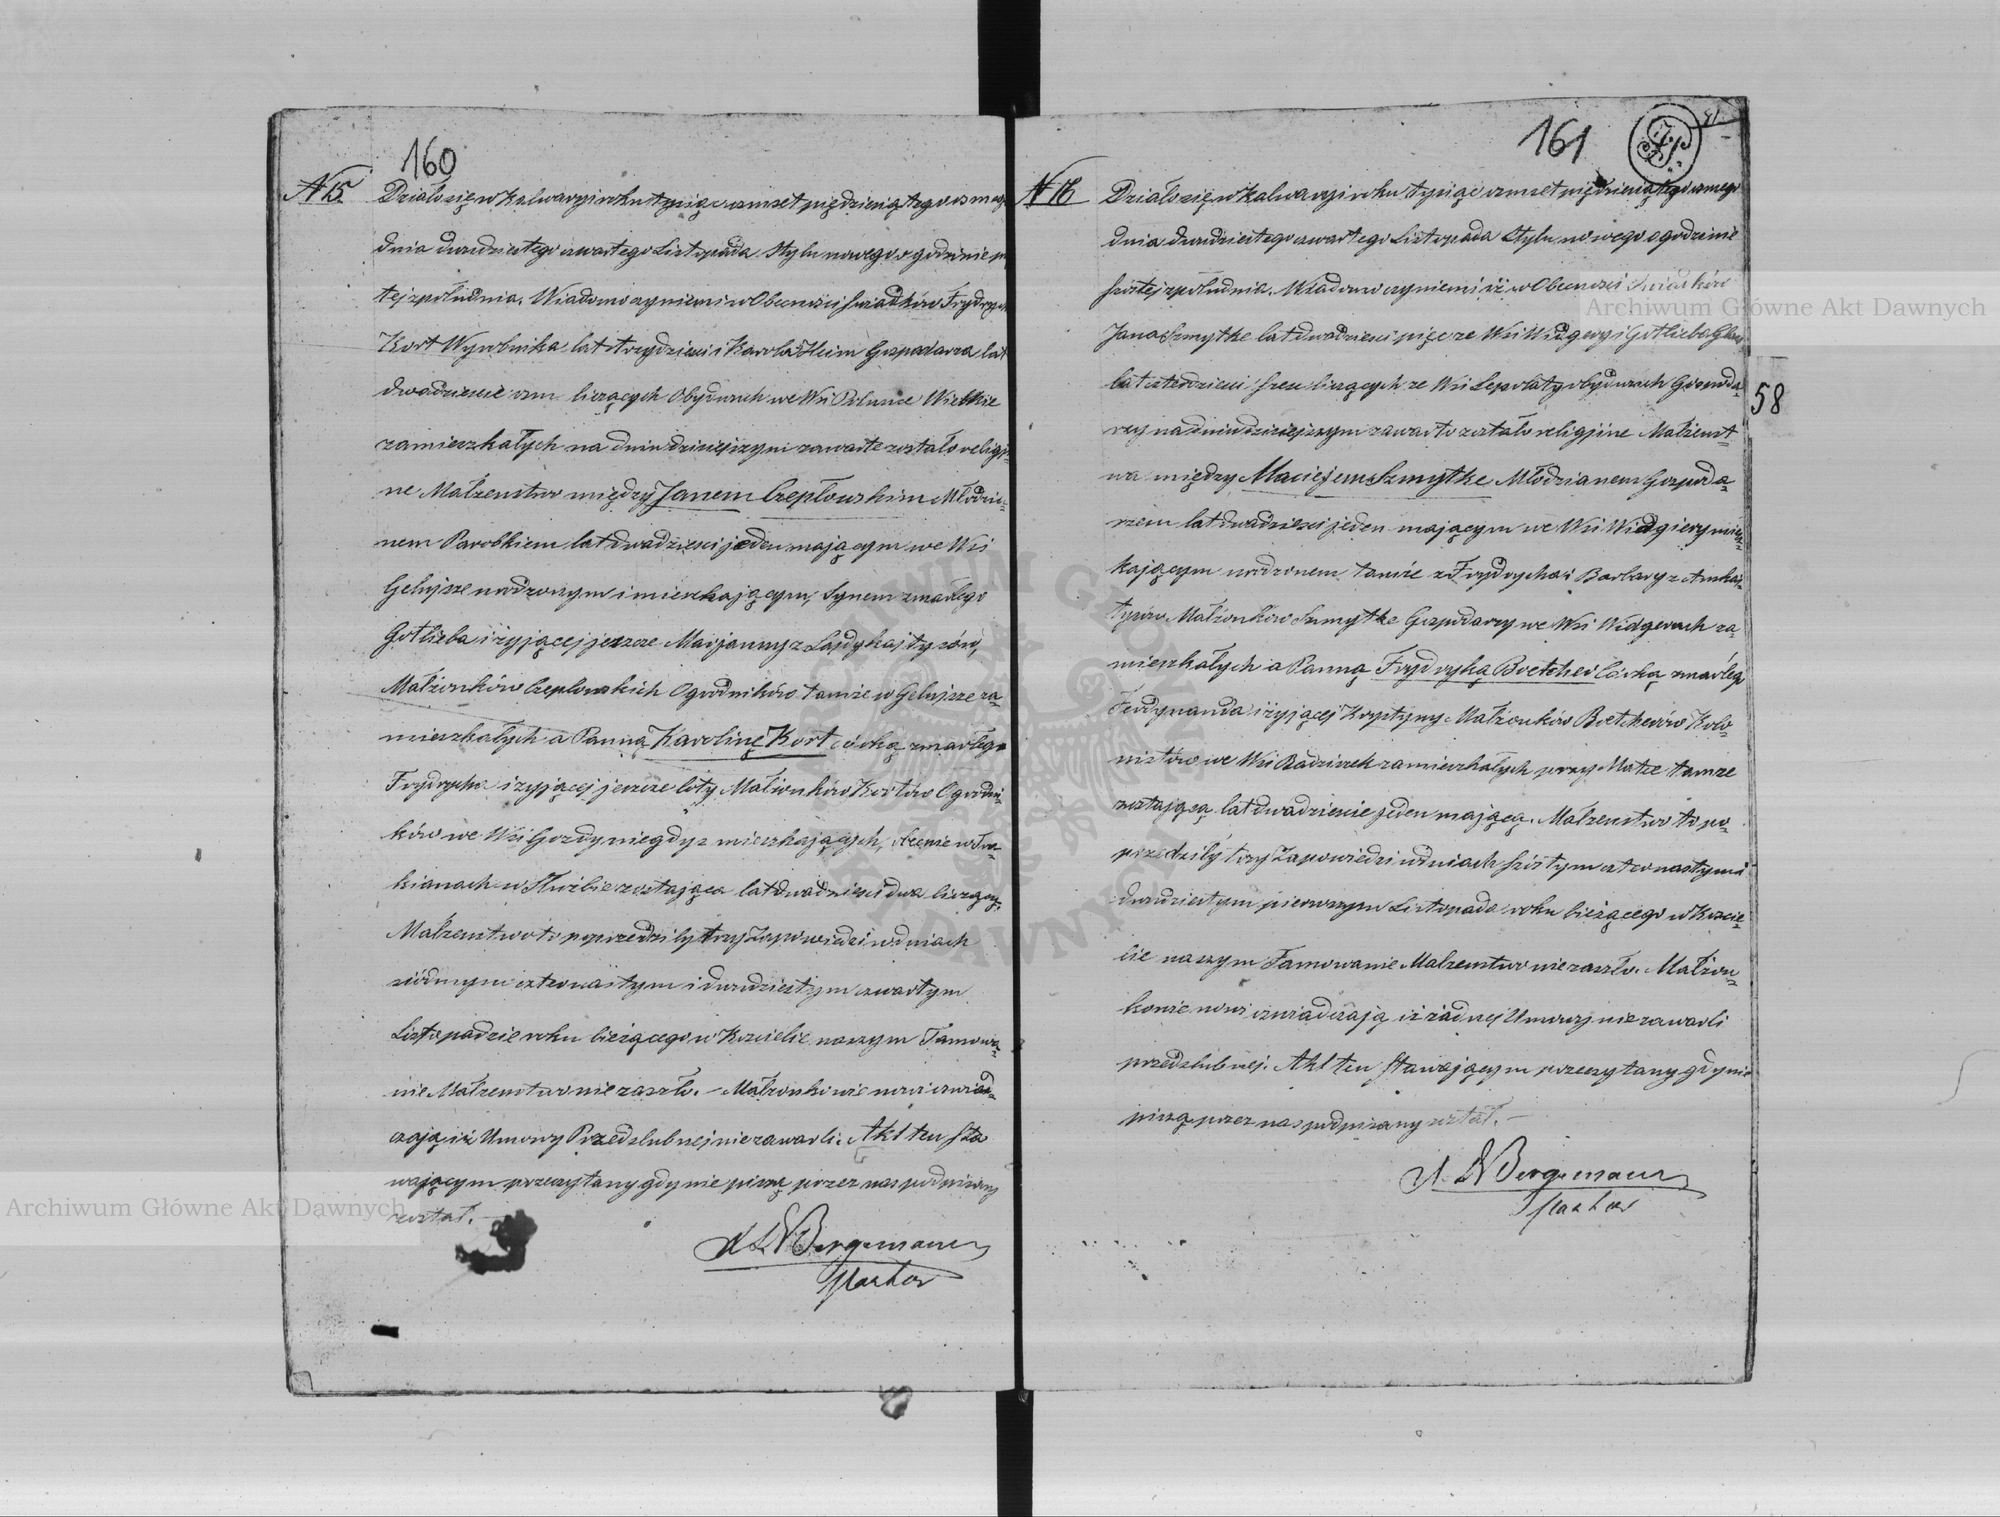 160
N 15
Działo się w Kalwaryi roku tysiąc osmset piędziesiątego osmego
dnia dwudziestego czwartego Listopada stylu nowego o godzinie
tej z południa. Wiadomo czyniemi w Obecności świadków Frydrycha
Kort Wyrobnika lat trzydziesci i Karola Heim Gospodarza lat
dwadziescie osm liczących Obydwuch we Wsi Wielkie
zamieszkałych na dniu dzisiejszym zawarte zostało religij-
ne Małżenstwo między Janem Czepłowskim Młodzia-
nem Parobkiem lat dwadziesci jeden mającym we Wsi
Geliysze urodzonym i mieszkającym, Synem zmarłego
Gotlieba i żyjącej jeszcze Maryanny z
Małżonków Czeplowskich Ogrodników tamże w Geliysze za-
mieszkałych a Panną Karolinę Kort córką zmarłego
Frydrycha i żyjącej jeszcze Loty Małżonków Kortów Ogrodni-
ków we Wsi Gozdy niegdyz mieszkających, obecnie w
kianach w Służbie zostająca lat dwadziesci dwa liczącą.
Małzenstwo to poprzedziły trzy Zapowiedzi w dniach
siódmym czternastym i dwudziestym czwartym
Listopadzie roku bieżącego w Koscielie naszym Tamowa-
nie Małzenstwo nie zaszło. – Małżonkowie nowi oswiad-
czają iż Umowy Przedslubnej nie zawarli. Akt ten sta
wającym przeczytany gdy nie piszą przez nas podpisany
został. –
Bergemann
Pastor
161
58
N 16
Działo się w Kalwaryi roku tysiąc osmset pięćdziesiątego osmego
dnia dwudziestego czwartego Listopada Stylu nowego o godzinie
szóstej z południa. Wiadomo czyniemi iż w Obecnosci Swiadków
Jana Szmytke lat dwadziesci pięc ze Wsi Widgery i Gotlieba
lat czterdziesci szesc liczących ze Wsi Lepołaty obydwuch Gospoda-
rzy na dniu dzisiejszym zawarto zostało religijine Małzenst-
wa między Maciejem Szmytke Młodzianem Gospoda-
rzem lat dwadziesci jeden mającym we Wsi Widgiery miesz-
kającym urodzonem tamże z Frydrycha i Barbary z
Małżonków Szmytke Gospodarzy we Wsi Widgerach za-
mieszkałych a Panną Frydryką Boetcher Córką zmarłego
Ferdynanda i żyjącej Krystyny Małżonków Boetcherów Kolo-
nistów we Wsi Badziszek zamieszkałych przy Matce tamze
zostającą lat dwadziescie jeden mającą. Małzenstwo to po-
przedziły trzy Zapowiedzi w dniach szóstym czternastym i
dwudziestym pierwszym Listopada roku bieżącego w Koscie-
lie naszym Tamowanie Małzenstwo nie zaszło. Małżon-
kowie nowi oswiadczają iż żadnej Umowy nie zawarli
przedslubnej. Akt ten stawającym przeczytany gdy nie
piszą przez nas podpisany został. –
Bergemann
Pastor
Archiwum Główne Akt Dawnych
Archiwum Główne Akt Dawnych
ARCHIWUM GŁÓWNE AKT DAWNYCH